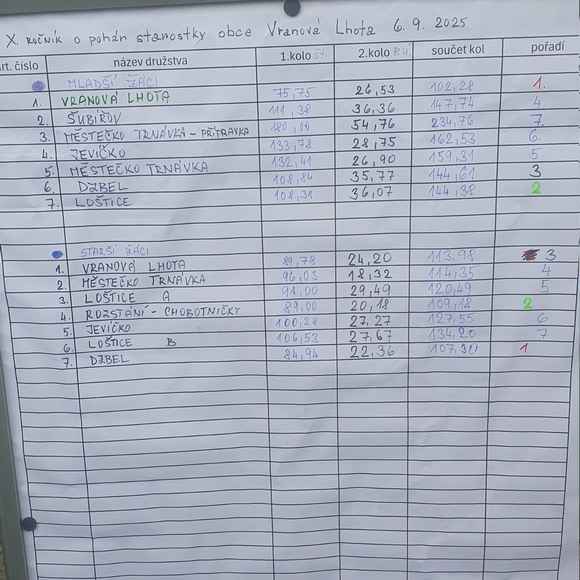 X. ROČNÍK O POHÁR STAROSTKY OBCE VRANOVÁ LHOTA 6. 9. 2025
rt. číslo název družstva 1.kolo 2.kolo součet kol pořadí
MLADŠÍ ŽÁCI
1. VRANOVÁ LHOTA 75,75 26,53 102,28 1.
2. ŠUBÍŘOV 111,38 36,36 147,74 4
3. MĚSTEČKO TRNÁVKA - PŘÍPRAVKA 54,76 234,76 7
4. JEVÍČKO 133,78 28,75 162,53 6
5. MĚSTEČKO TRNÁVKA 132,41 26,90 159,31 5
6. DZBEL 108,84 35,77 144,61 3
7. LOŠTICE 108,31 36,07 144,38 2
STARŠÍ ŽÁCI
1. VRANOVÁ LHOTA 89,78 24,20 113,98 3
2. MĚSTEČKO TRNÁVKA 96,03 18,32 114,35 4
3. LOŠTICE A 91,00 29,49 120,49 5
4. ROZSTÁNÍ - CHOBOTNIČKY 89,00 20,18 109,18 2
5. JEVÍČKO 100,28 27,27 127,55 6
6. LOŠTICE B 106,53 27,67 134,20 7
7. DZBEL 84,94 22,36 107,30 1